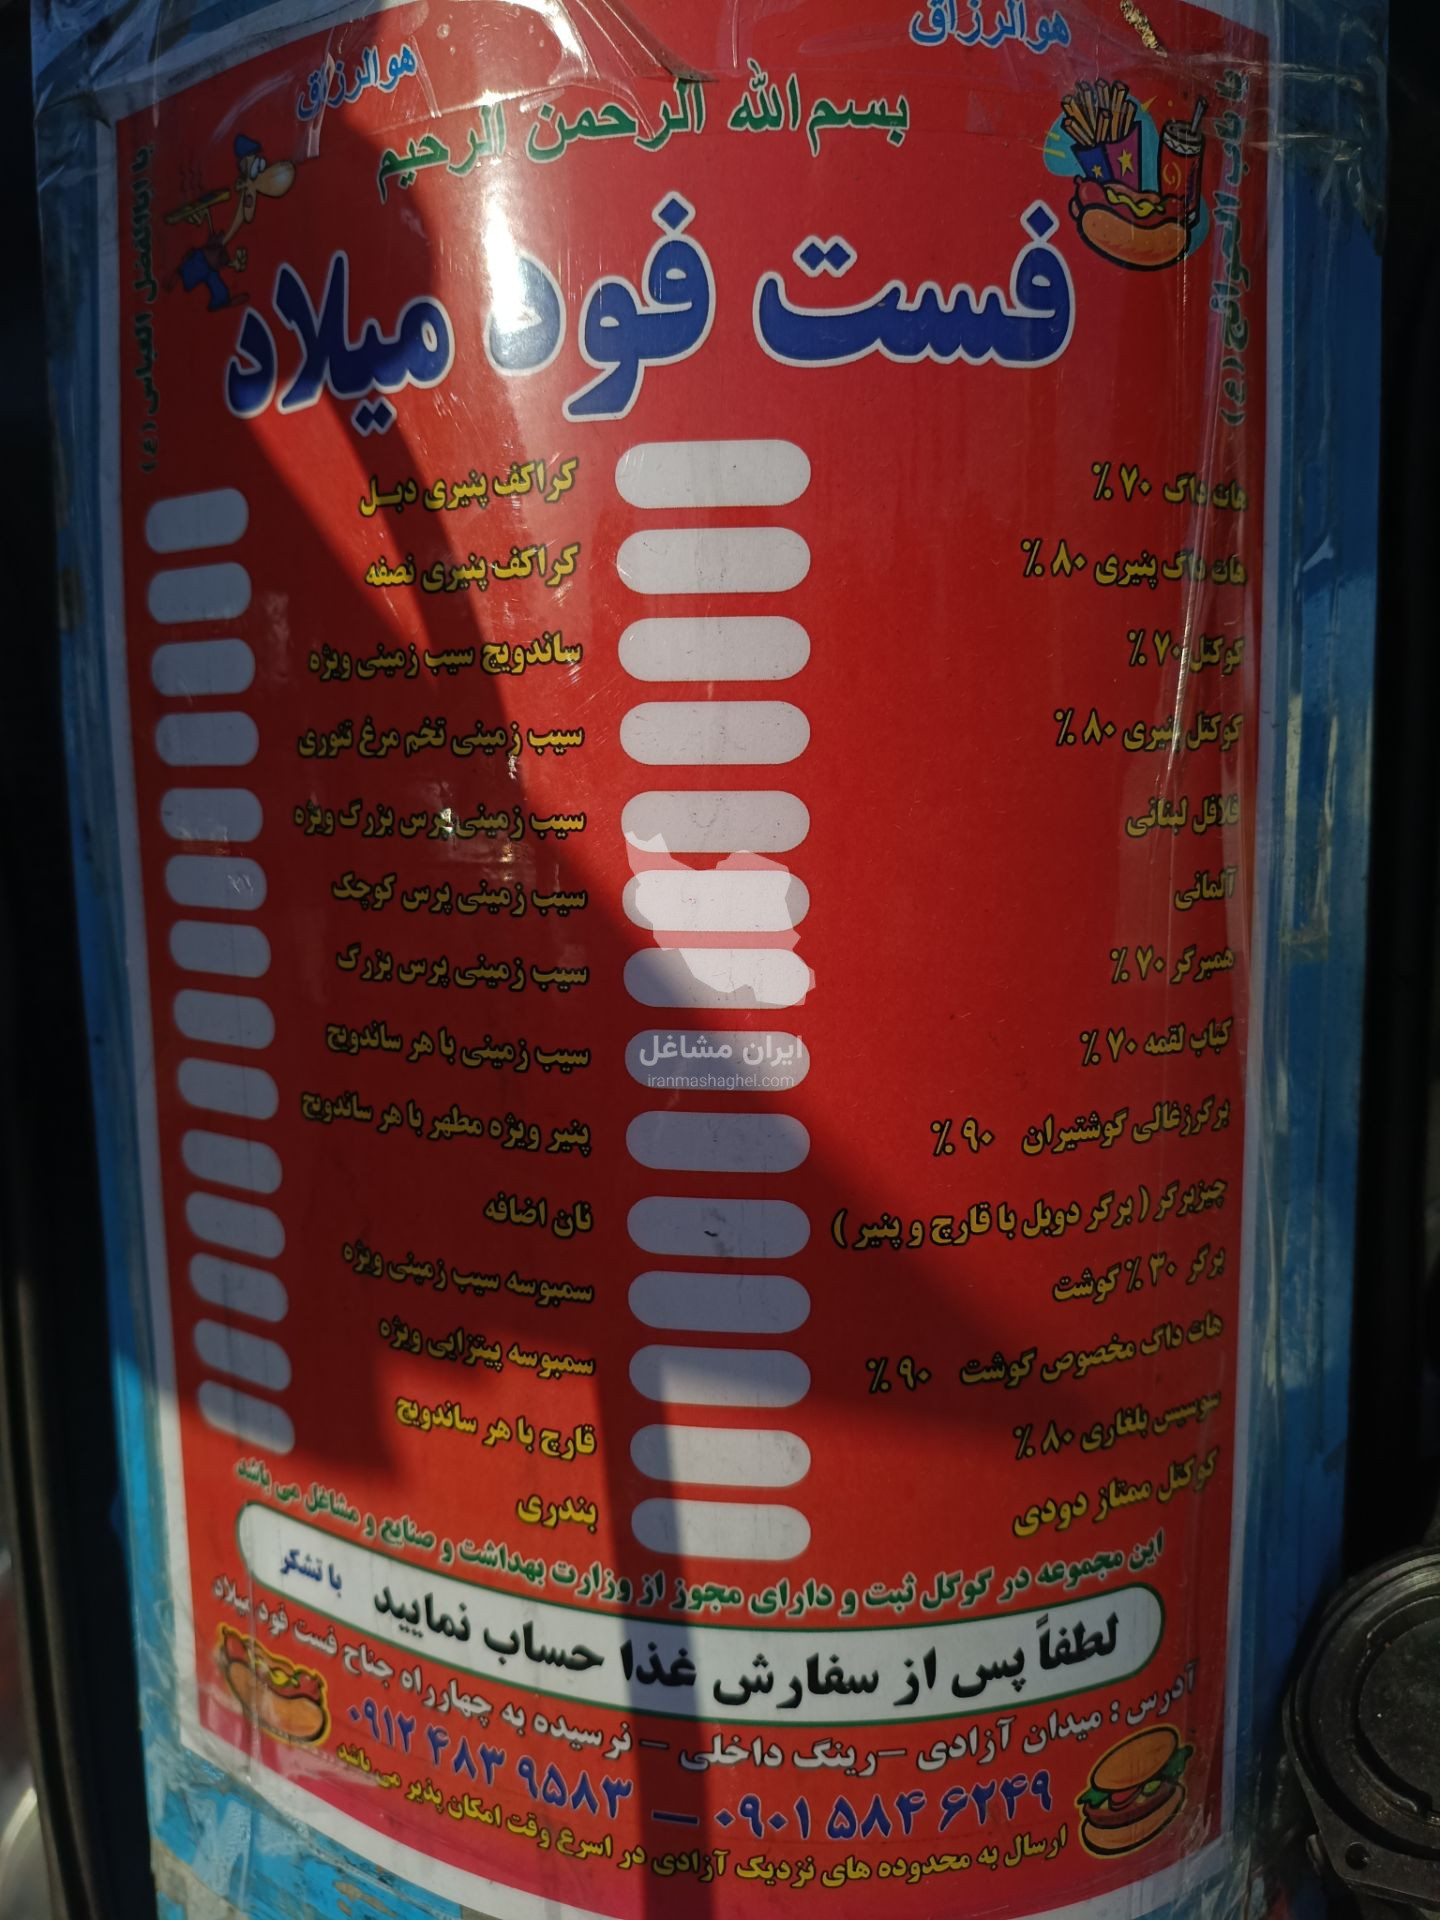 هوالرزاق
هوالرزاق
بسم الله الرحمن الرحیم
یا باب الحوائج (ع)
یا اباالفضل العباس (ع)
فست فود میلاد
هات داک ۷۰ ٪
هات داگ پنیری ۸۰ ٪
کوکتل ۷۰ ٪
کوکتل پنیری ۸۰ ٪
فلافل لبنانی
آلمانی
همبرگر ۷۰ ٪
کباب لقمه ۷۰ ٪
برگرزغالی گوشتیران ۹۰ ٪
چیزبرگر ( برگر دوبل با قارچ و پنیر )
برگر ۳۰ ٪ گوشت
هات داک مخصوص گوشت ۹۰ ٪
سوسیس بلغاری ۸۰ ٪
کوکتل ممتاز دودی
کراکف پنیری دبـل
کراکف پنیری نصفه
ساندویچ سیب زمینی ویژه
سیب زمینی تخم مرغ تنوری
سیب زمینی پرس بزرگ ویژه
سیب زمینی پرس کوچک
سیب زمینی پرس بزرگ
سیب زمینی با هر ساندویچ
پنیر ویژه مطهر با هر ساندویچ
نان اضافه
سمبوسه سیب زمینی ویژه
سمبوسه پیتزایی ویژه
قارچ با هر ساندویچ
بندری
ایران مشاغل
iranmashaghel.com
این مجموعه در گوگل ثبت و دارای مجوز از وزارت بهداشت و صنایع و مشاغل می باشد
لطفاً پس از سفارش غذا حساب نمایید با تشکر
آدرس : میدان آزادی – رینگ داخلی – نرسیده به چهارراه جناح فست فود میلاد
۰۹۰۱ ۵۸۴ ۶۲۴۹ – ۰۹۱۲ ۴۸۳ ۹۵۸۳
ارسال به محدوده های نزدیک آزادی در اسرع وقت امکان پذیر می باشد